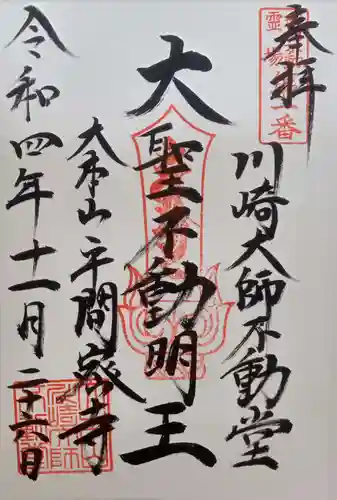 奉拝
川崎大師不動堂
大聖不動明王
大本山平間寺
令和四年十一月二十六日